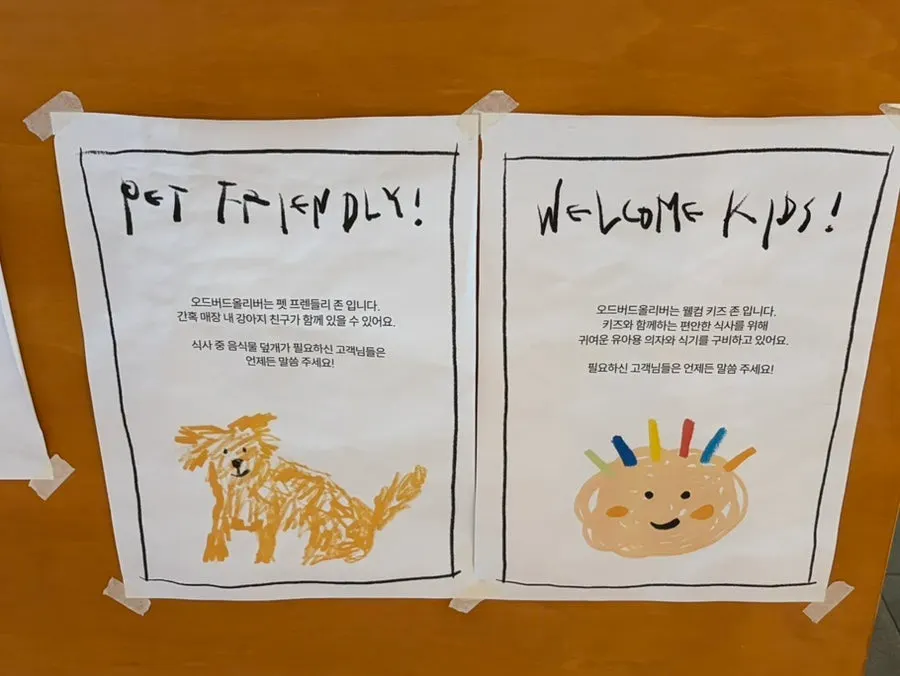 PET FRIENDLY!
오드버드올리버는 펫 프렌들리 존 입니다.
간혹 매장 내 강아지 친구가 함께 있을 수 있어요.
식사 중 음식물 덮개가 필요하신 고객님들은
언제든 말씀 주세요!
WELCOME KIDS!
오드버드올리버는 웰컴 키즈 존 입니다.
키즈와 함께하는 편안한 식사를 위해
귀여운 유아용 의자와 식기를 구비하고 있어요.
필요하신 고객님들은 언제든 말씀 주세요!